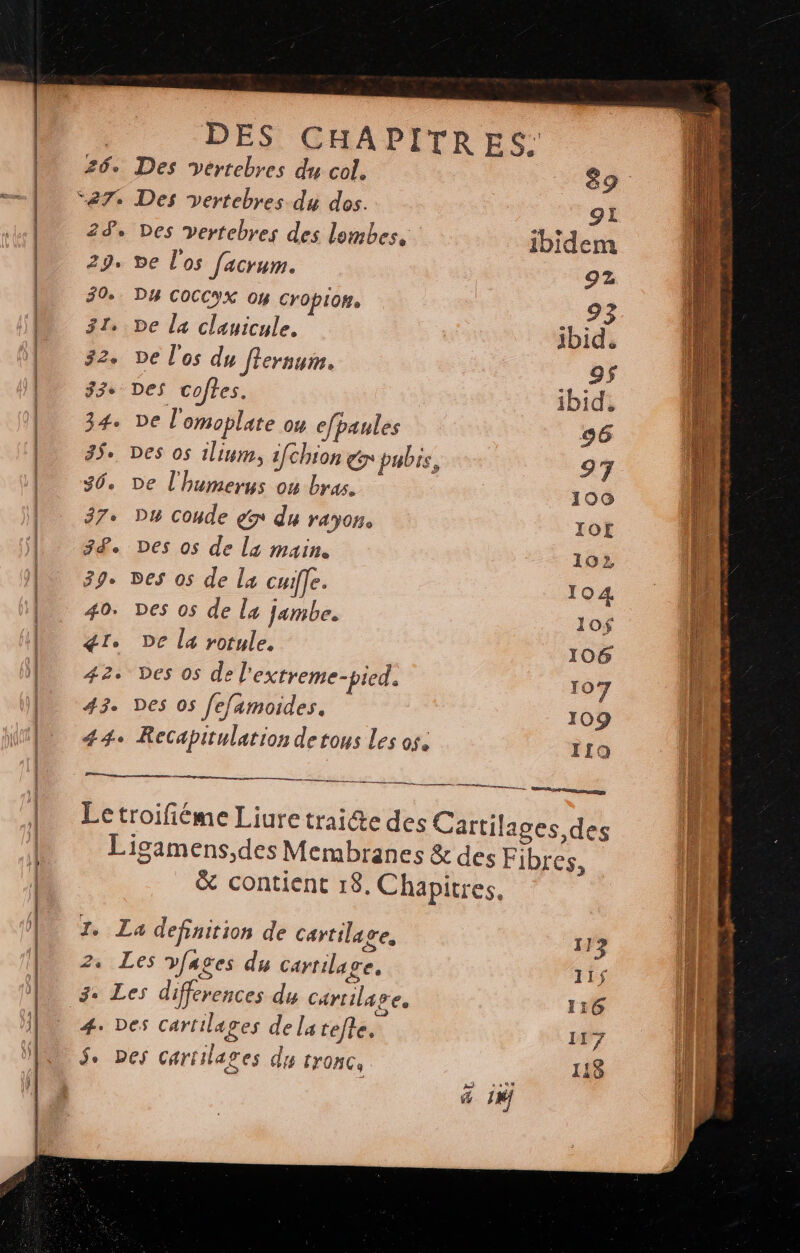 DES CHAPITRES.
26. Des vertebres du col. 89
27. Des vertebres du dos. 91
28. Des vertebres des lombes. ibidem
29. De l'os ſacrum. 92
30. Du coccyx ou cropion. 93
31. De la clauicule. ibid.
32. De l'os du ſternum. 95
33. Des coſtes. ibid.
34. De l'omoplate ou eſpaules 96
35. Des os ilium, iſchion & pubis, 97
36. De l'humerus ou bras. 100
37. Du coude & du rayon. 101
38. Des os de la main. 102
39. Des os de la cuiſſe. 104
40. Des os de la jambe. 105
41. De la rotule. 106
42. Des os de l'extreme-pied. 107
43. Des os ſeſamoides. 109
44. Recapitulation de tous les os. 110
Le troiſiéme Liure traicte des Cartilages, des
Ligamens, des Membranes & des Fibres,
& contient 18. Chapitres.
1. La definition de cartilage. 113
2. Les vſages du cartilage. 115
3. Les differences du cartilage. 116
4. Des cartilages de la teſte. 117
5. Des cartilages du tronc, 118
ã iiij